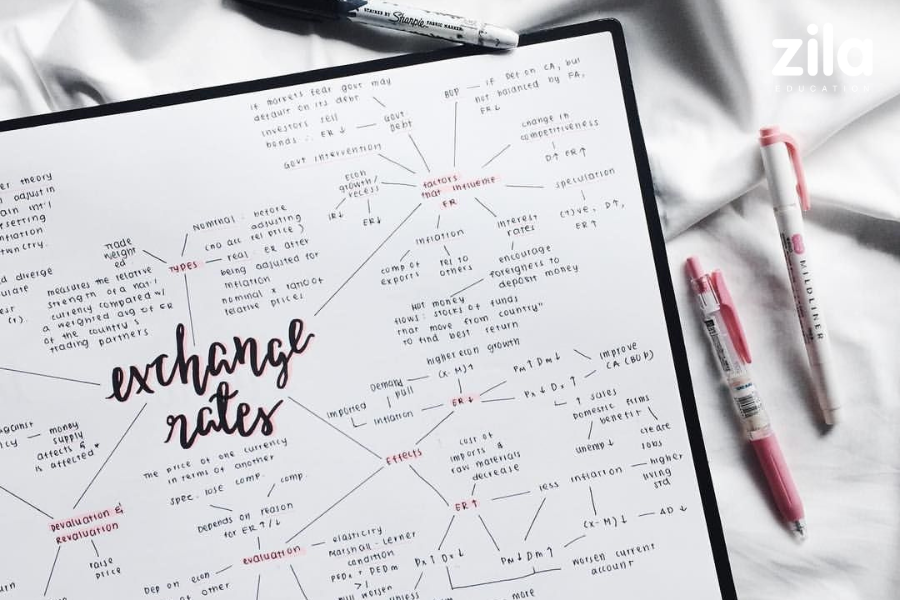 Sharpie FABRIC MARKER
zila
EDUCATION
WILDLINER
if markets fear govt may
default on its debt
investors sell
bonds ∴ ER ↓
GOVT.
Debt
GOVT INTERVENTION
Econ
growth/
recess
IR↓
ER↓
BOP
if Def on CA, but
not balanced by FA,
ER↓
change in
competitiveness
D↑ ER↑
speculation
(+)ve, D↑,
ER↑
factors
that influence
ER
inflation
comp of
exports
rel to
others
interest
rates
encourage
foreigners to
deposit money
HOT money
flows: stocks of funds
that move from country"
to find best return
er theory
adjust in
ain int'l
setting
flation
wn ctry.
d diverge
ulate
est
(r).
Trade
weight
ed
TYPES
measures the relative
strength of a nat'l
currency compared w/
a weighted avg of ER
of the country's
trading partners
Nominal: before
adjusting
(no acc rel price)
real: ER after
being adjusted for
inflation
nominal x ratio of
relative prices
exchange
rates
the price of one currency
in terms of another
against
icy
money
supply
affects &
is affected
Devaluation &
Revaluation
raise
price
spec. lose comp.
comp.
Depends on reason
for ER ↑/↓
evaluation
Dep on econ
of other
elasticity
Marshall-Lerner
condition
PEDx + PEDm
>1
will worsen
unless
more
Effects
higher econ growth
(X-M)↑
Demand
pull
imported
inflation
ER↓
Pm↑ Dm↓
Px↓ Dx↑
improve
CA (BOP)
↑ sales
domestic firms
benefit
unemp↓
create
jobs
cost of
imports &
raw materials
decrease
ER↑
less inflation
higher
living
std
(X-M)↓
AD↓
Px↑ Dx↓
Pm↓ Dm↑
worsen current
account